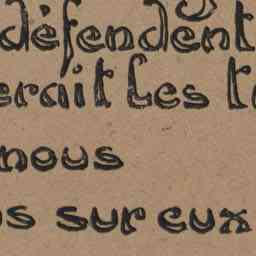 défendent
erait les t
nous
s sur eux